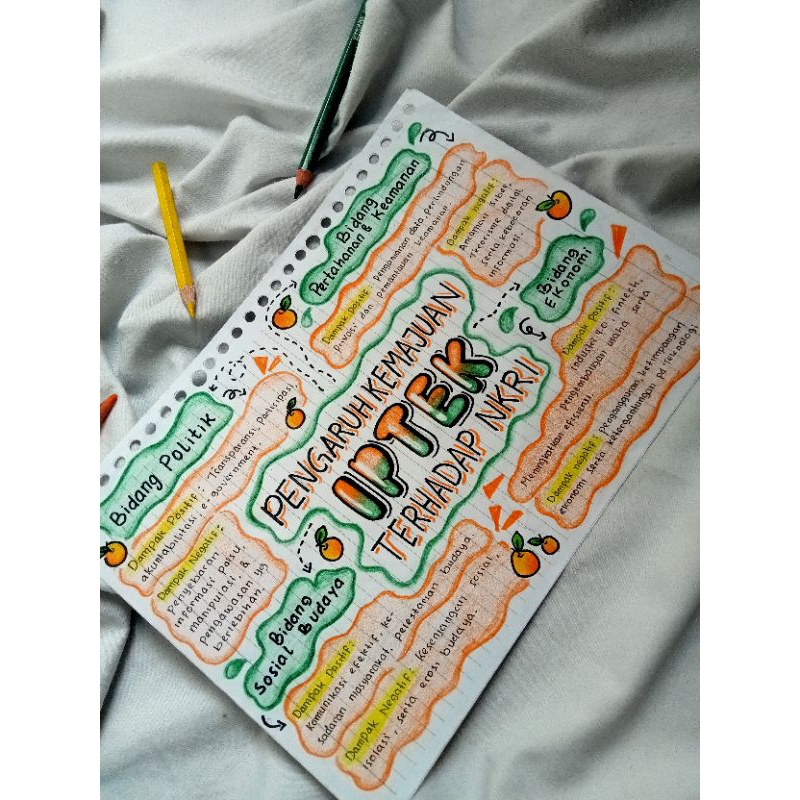 PENGARUH KEMAJUAN
IPTEK
TERHADAP NKRI!
Bidang
Pertahanan & Keamanan
Dampak Positif: pengawasan data, perlindungan
Privasi dan pemantauan keamanan.
Dampak Negatif:
Ancaman siber,
Terorisme digital,
serta kebocoran
informasi.
Bidang
EKonomi
Dampak Positif: fintech,
industri 4.0,
pengembangan usaha serta
Meningkatkan efisiensi.
Dampak negatif: pengangguran, ketimpangan
ekonomi serta ketergantungan pd Teknologi
Bidang Politik
Dampak Positif: Transparansi, Partisipasi
akuntabilitasi, e-government.
Dampak Negatif:
penyebaran
informasi palsu,
manipulasi &
pengawasan yg
berlebihan.
Bidang
Sosial Budaya
Dampak Positif:
Komunikasi efektif, ke-
sadaran masyarakat, pelestarian budaya.
Dampak Negatif: Kesenjangan sosial,
isolasi, serta erosi budaya.